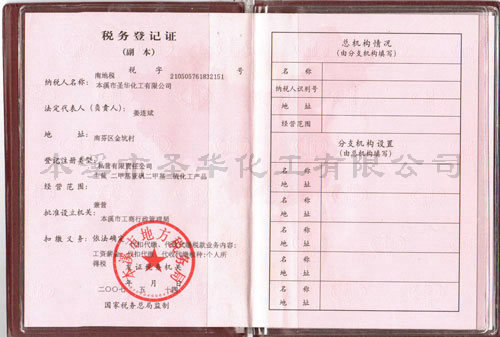 税务登记证
(副 本)
税 字 号
南地税 210505761832151
纳税人名称: 本溪市圣华化工有限公司
法定代表人(负责人): 姜连斌
地 址: 南芬区金坑村
登记注册类型: 私营有限责任公司
经营范围: 二甲基亚砜二甲基二硫化工产品
批准设立机关: 本溪市工商行政管理局
扣缴义务: 依法确定
得税
发证税务机关
二〇〇七 年 五 月 日
国家税务总局监制
本溪市地方税务局
总机构情况
(由分支机构填写)
名 称
纳税人识别号
地 址
经营范围
分支机构设置
(由总机构填写)
名 称
地 址
名 称
地 址
名 称
地 址
名 称
地 址
本溪市圣华化工有限公司